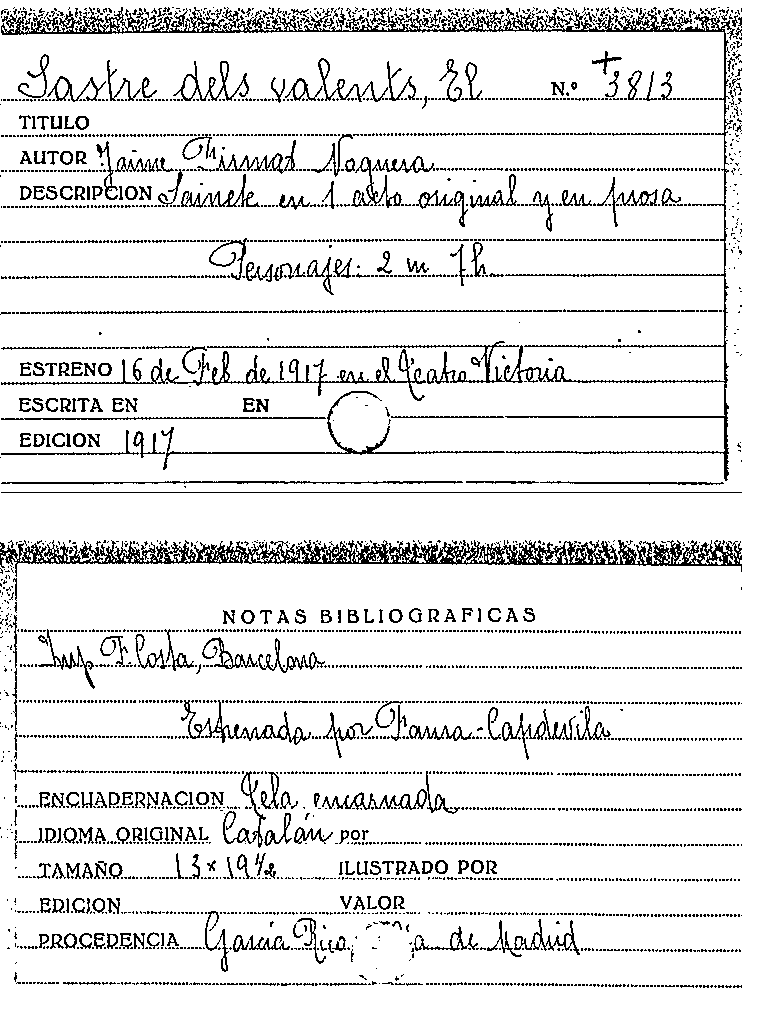 Sastre dels valents, El N.º +3813
TITULO
AUTOR Jaime Firmat Noguera
DESCRIPCION Sainete en 1 acto original y en prosa
Personajes: 2 m 7 h.
ESTRENO 16 de Feb de 1917 en el Teatro Victoria
ESCRITA EN EN
EDICION 1917
NOTAS BIBLIOGRAFICAS
Imp F. Costa, Barcelona
Estrenada por Faura-Capdevila
ENCUADERNACION Tela encarnada
IDIOMA ORIGINAL Catalán por
TAMAÑO 13 x 19 1/2 ILUSTRADO POR
EDICION VALOR
PROCEDENCIA García Rico, de Madrid